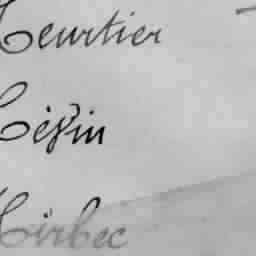 Heurtier
Hévin
Hirbec